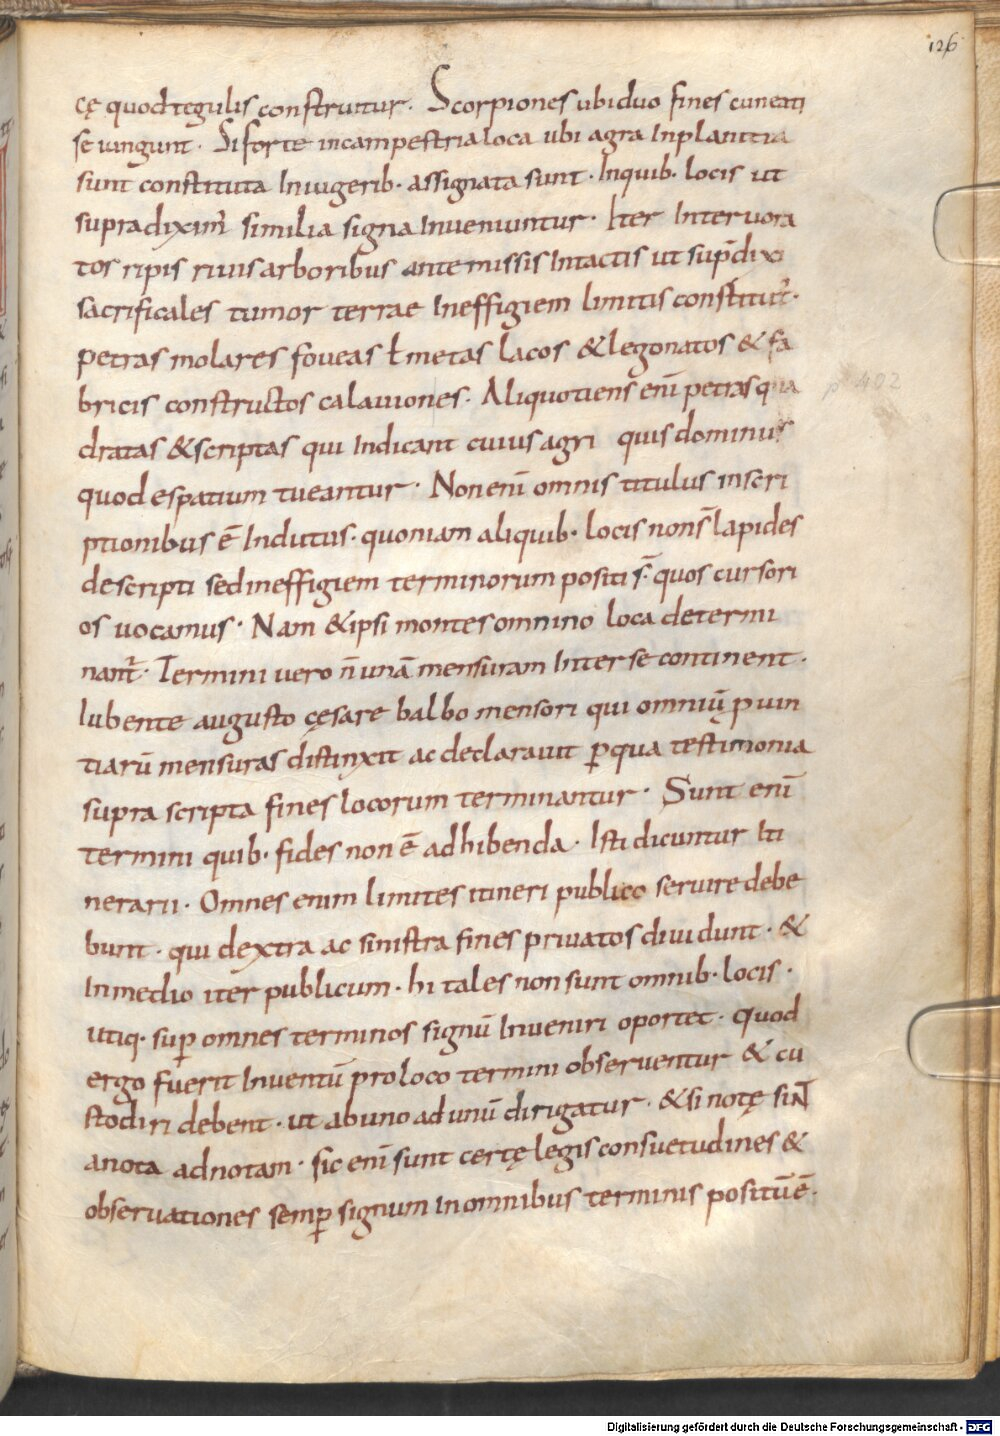 126
cę quod tegulis construitur. Scorpiones ubi duo fines cuneati
se iungunt. Si forte in campestria loca ubi agra Inplanitia
sunt constituta Iniugerib. assignata sunt. Inquib. locis ut
supradixim᷒ similia signa Inueniuntur. Iter Interuora
tos ripis riuis arboribus ante missis Intactis ut sup̄dixi
sacrificales tumor terrae Ineffigiem limitis constitut̄.
petras molares foueas ł metas lacos & legonatos & fa
bricis constructos calauiones. Aliquotiens enī petras qua
dratas & scriptas qui Indicant cuius agri quis dominus
quod espatium tueantur. Non enī omnis titulus inscri
ptionibus ē Indutus. quoniam aliquib. locis non s̄ lapides
descripti sed ineffigiem terminorum positi s̄. quos cursori
os uocamus. Nam & ipsi montes omnino loca determi
nant̄. Termini uero n̄ unā mensuram Inter se continent.
Iubente augusto cęsare balbo mensori qui omniū ꝓuin
tiarū mensuras distinxit ac declarauit ꝑqua testimonia
supra scripta fines locorum terminantur. Sunt enī
termini quib. fides non ē adhibenda. Isti dicuntur Iti
nerarii. Omnes enim limites itineri publico seruire debe
bunt. qui dextra ac sinistra fines priuatos diuidunt. &
Inmedio iter publicum. hi tales non sunt omnib. locis.
utiq. suꝑ omnes terminos signū Inueniri oportet. quod
ergo fuerit Inuentū pro loco termini obseruentur & cu
stodiri debent. ut ab uno ad unū dirigatur. & si notę sint
a nota ad notam. sic enī sunt certę legis consuetudines &
obseruationes semꝑ signum in omnibus terminis positū ē.
p 402
Digitalisierung gefördert durch die Deutsche Forschungsgemeinschaft - DFG